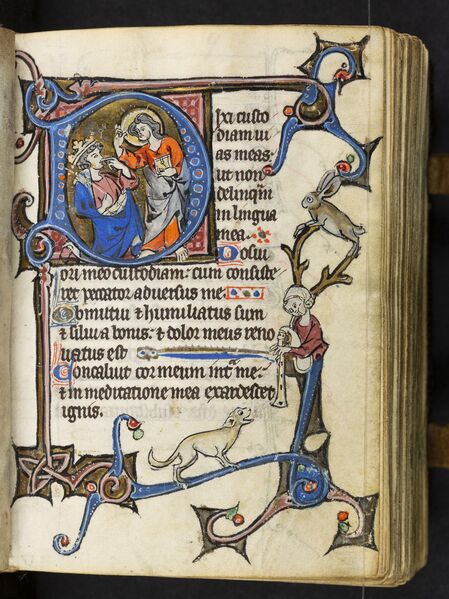 Dixi custo
diam ui
as meas
ut non
delinq̃m
in lingua
mea.
Posui
ori meo custodiam: cum consiste
ret peccator aduersus me.
Obmutui ⁊ humiliatus sum
⁊ silui a bonis: ⁊ dolor meus reno
uatus est
Concaluit cor meum int̃ me:
⁊ in meditatione mea exardescet
ignis.